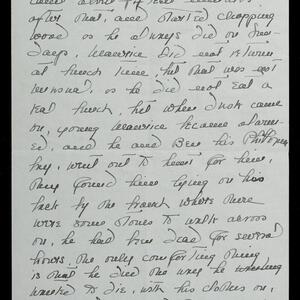 after that, and started chopping
wood as he always did on Sun-
days, Maurice did not return
at lunch time, but that was not
unusual, as he did not eat a
real lunch, but when dusk came
on, young Maurice became alarm-
ed, and he and Ben his
went out to hunt for him,
They found him lying on his
back by the where there
were some stones to walk across
on, he had been dead for several
hours, The only comforting thing
is that he died the way he
wanted to die, with his clothes on,